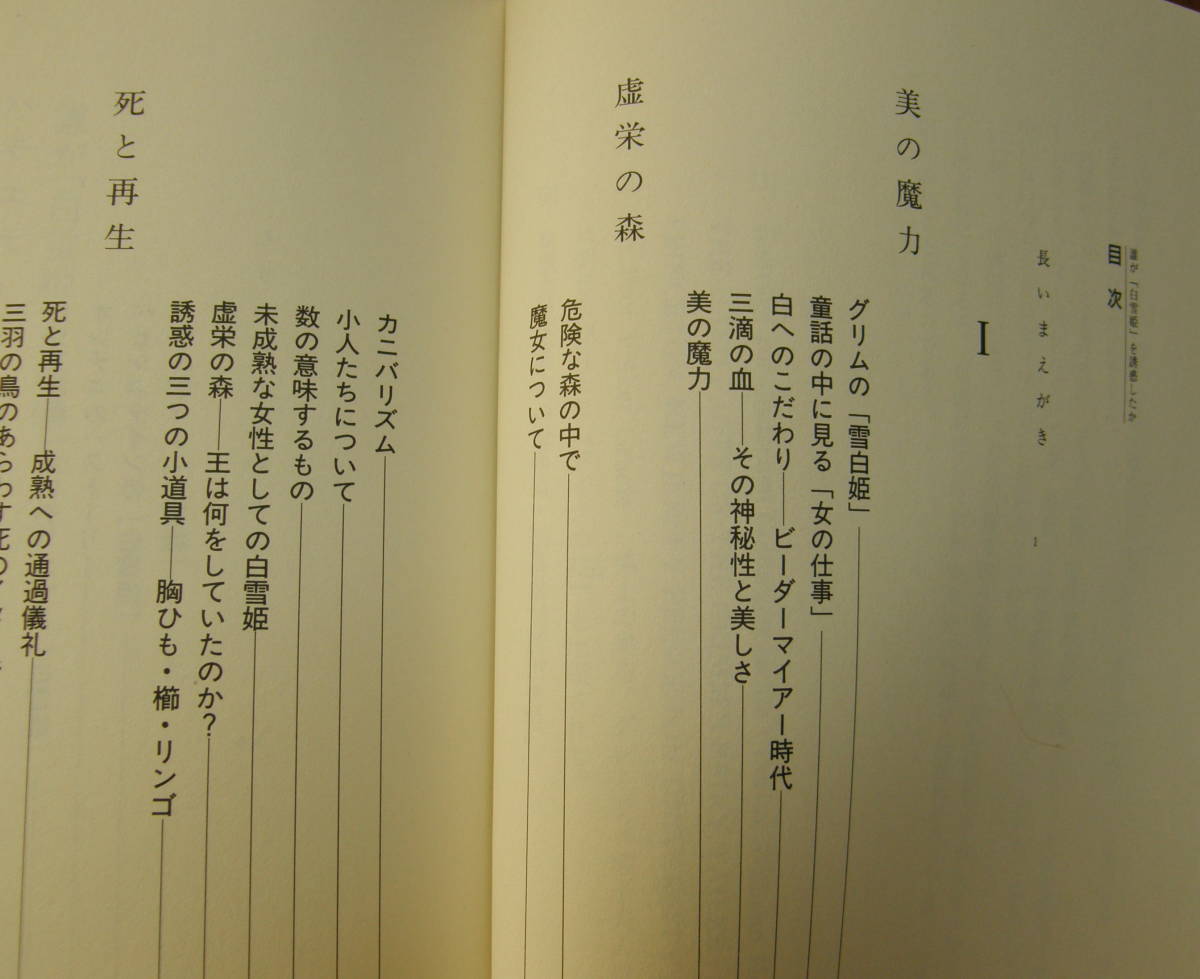 誰が「白雪姫」を誘惑したか
目次
長いまえがき 1
I
美の魔力
グリムの「雪白姫」
童話の中に見る「女の仕事」
白へのこだわり——ビーダーマイアー時代
三滴の血——その神秘性と美しさ
美の魔力
虚栄の森
危険な森の中で
魔女について
カニバリズム
小人たちについて
数の意味するもの
未成熟な女性としての白雪姫
虚栄の森——王は何をしていたのか？
誘惑の三つの小道具——胸ひも・櫛・リンゴ
死と再生
死と再生——成熟への通過儀礼
三羽の鳥のあらわす死の